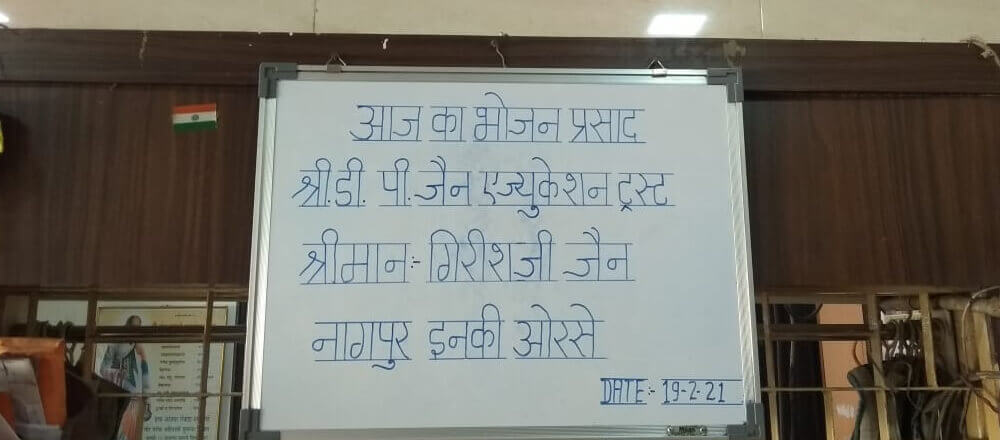 आज का भोजन प्रसाद
श्री.डी. पी. जैन एज्युकेशन ट्रस्ट
श्रीमान:- गिरीशजी जैन
नागपुर इनकी ओरसे
DATE:- 19-2-21